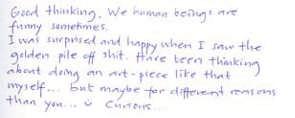 Good thinking. We human beings are
funny sometimes.
I was surprised and happy when I saw the
golden pile off shit. Have been thinking
about doing an art-piece like that
myself... but maybe for different reasons
than you... Curious...